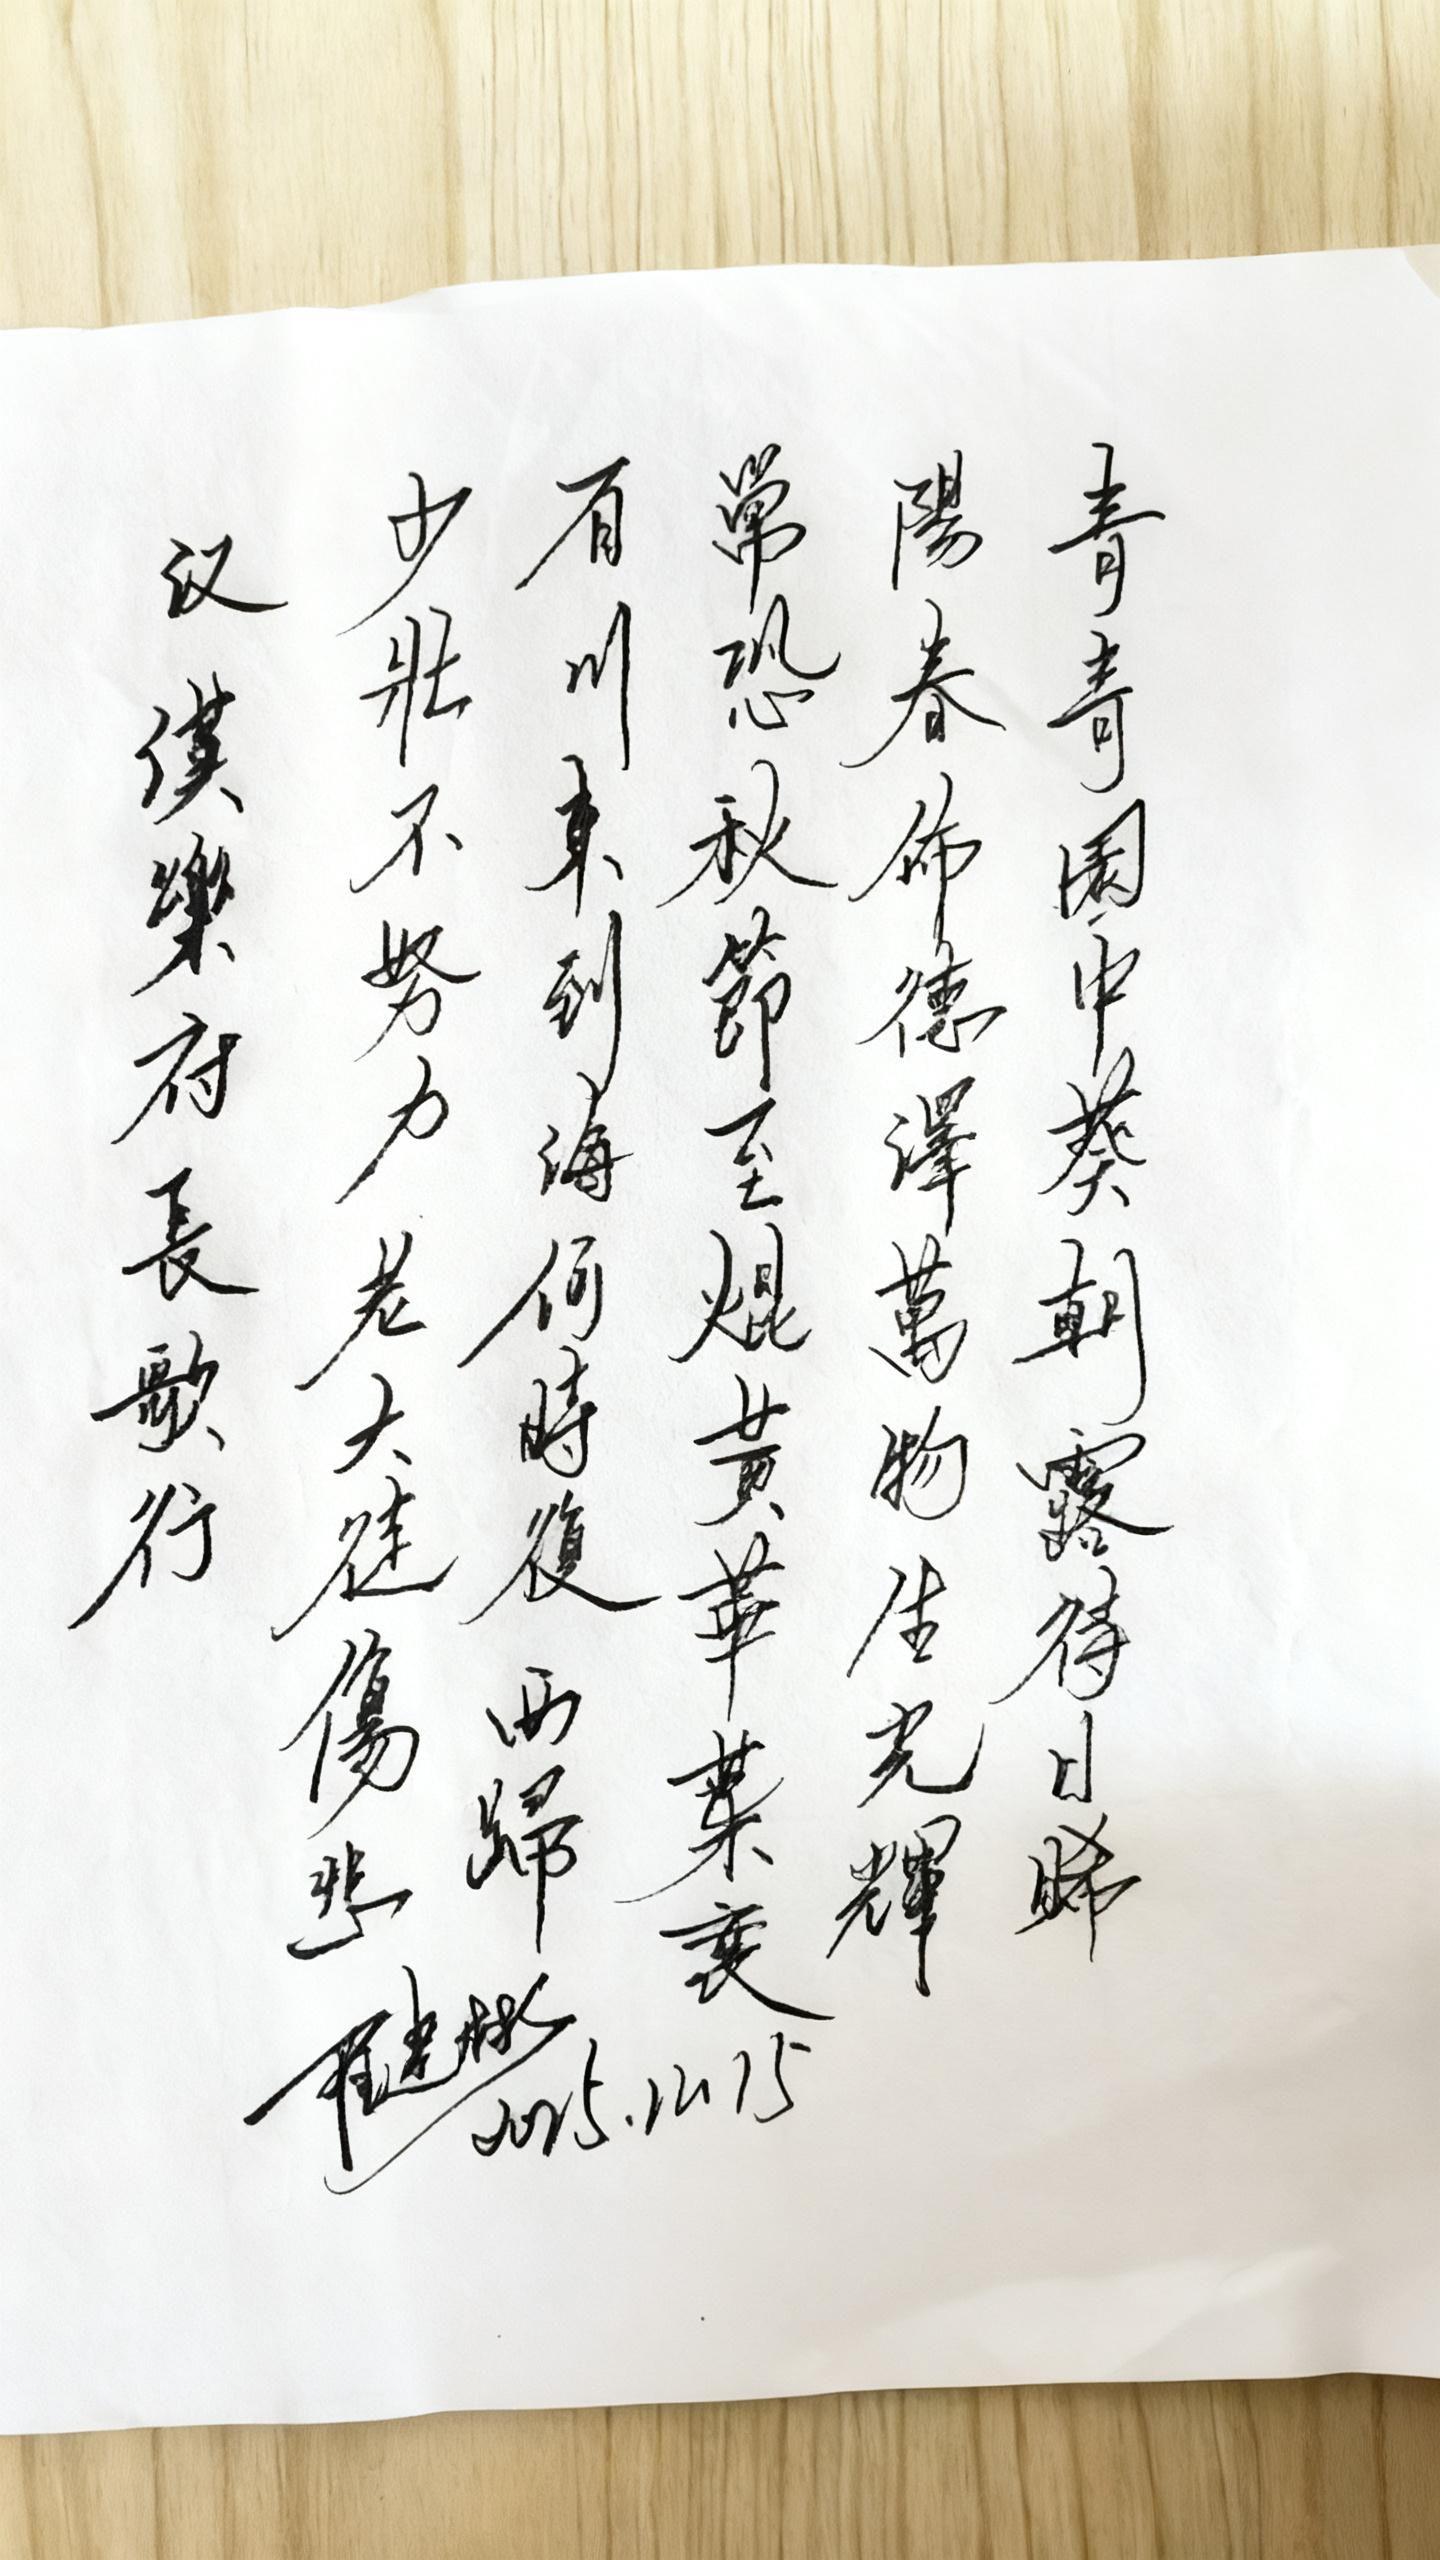 青青園中葵朝露待日晞
陽春佈德澤萬物生光輝
常恐秋節至焜黃華葉衰
百川東到海何時復西歸
少壯不努力老大徒傷悲
汉漢樂府長歌行
2025.12.15